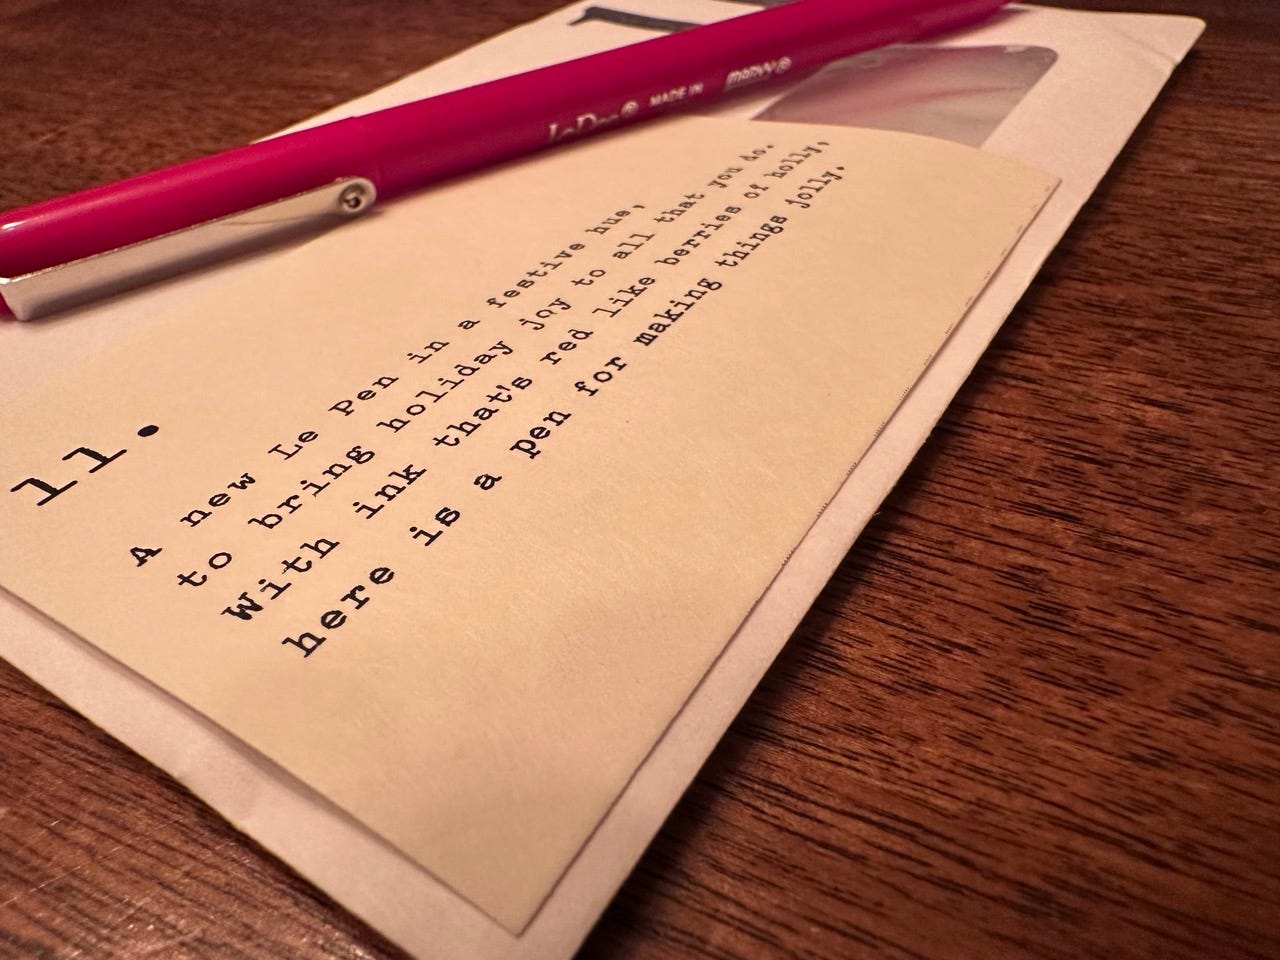 MADE IN
MARVY®
11.
A new Le Pen in a festive hue,
to bring holiday joy to all that you do.
With ink that's red like berries of holly,
here is a pen for making things jolly.